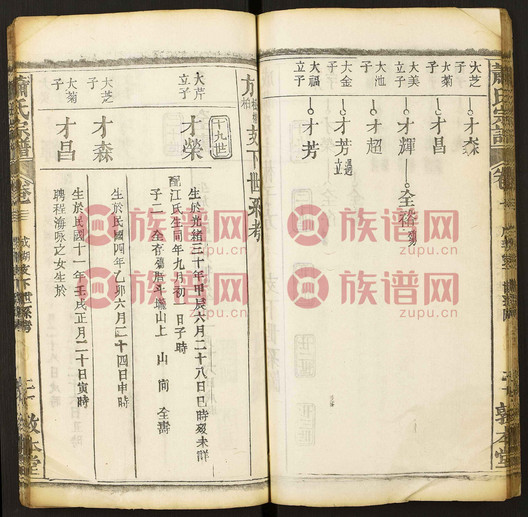 蕭氏宗譜
大芝子
才森
大菊子
才昌
大美立子
才輝
全
大池子
才超
大金子
才芳
立
大福立子
才芳
敦本堂
下世系
十九世
大芹立子
才榮
生於光緒三十年甲辰六月二十八日巳時歿未詳
配江氏生同年九月初 日子時
子二 全
山上 山向 全
大芝子
才森
生於民國四年乙卯六月二十四日申時
大菊子
才昌
生於民國十一年壬戌正月二十日寅時
聘程海咏之女生於
蕭氏宗譜
卷
敦本堂
族谱网
zupu.cn
族谱网
zupu.cn
族谱网
zupu.cn
族谱网
zupu.cn
族谱网
zupu.cn
族谱网
zupu.cn